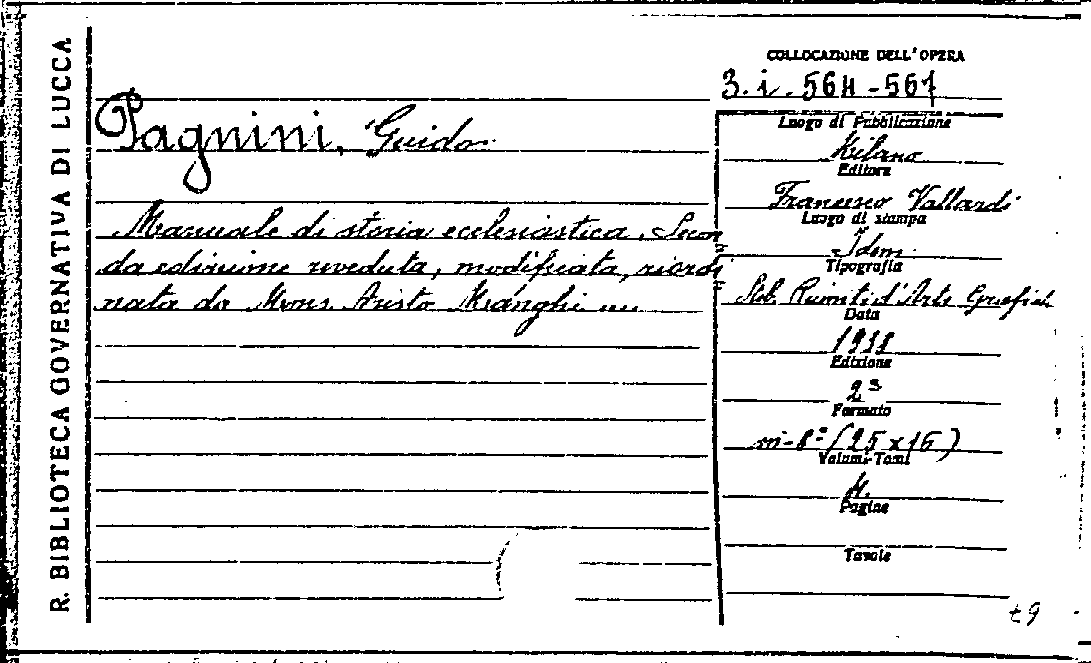 R. BIBLIOTECA GOVERNATIVA DI LUCCA
Pagnini, Guido
Manuale di storia ecclesiastica. Secon
da edizione riveduta, modificata, riordi
nata da Mons. Aristo Manghi
COLLOCAZIONE DELL'OPERA
3. i. 564-567
Luogo di Pubblicazione
Milano
Editore
Francesco Vallardi
Luogo di stampa
Idem
Tipografia
Stab. Riuniti d'Arte Grafica
Data
1938
Edizione
2ª
Formato
in-8° (25x16)
Volumi-Tomi
4.
Pagine
Tavole
t9